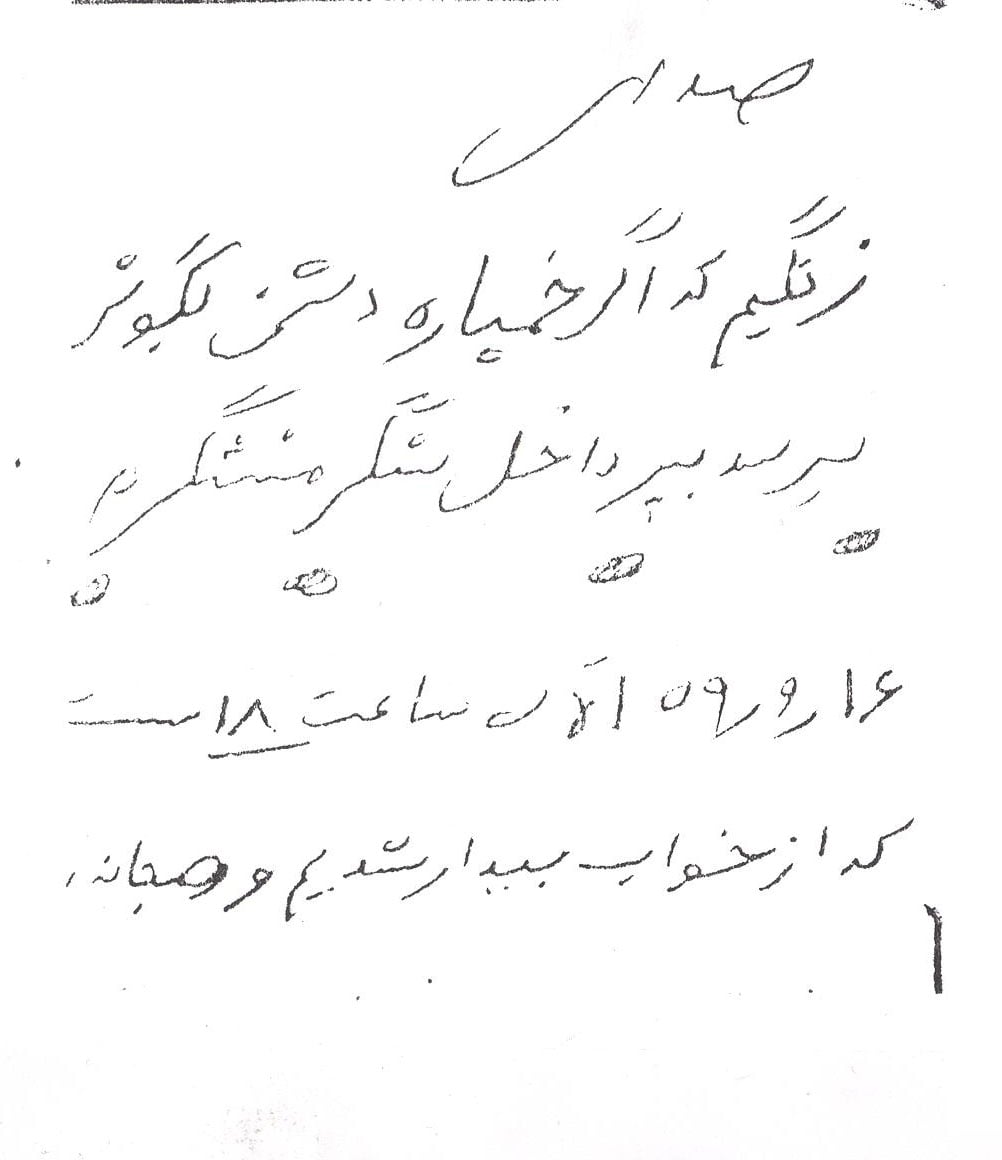 صدای
زنگیم که اگر خمپاره دشمن بگوش
رسد بپر داخل سنگر منتظرم
۱۶ر۹ر۵۹ الآن ساعت ۱۸ است
که از خواب بیدار شدیم و صبحانه